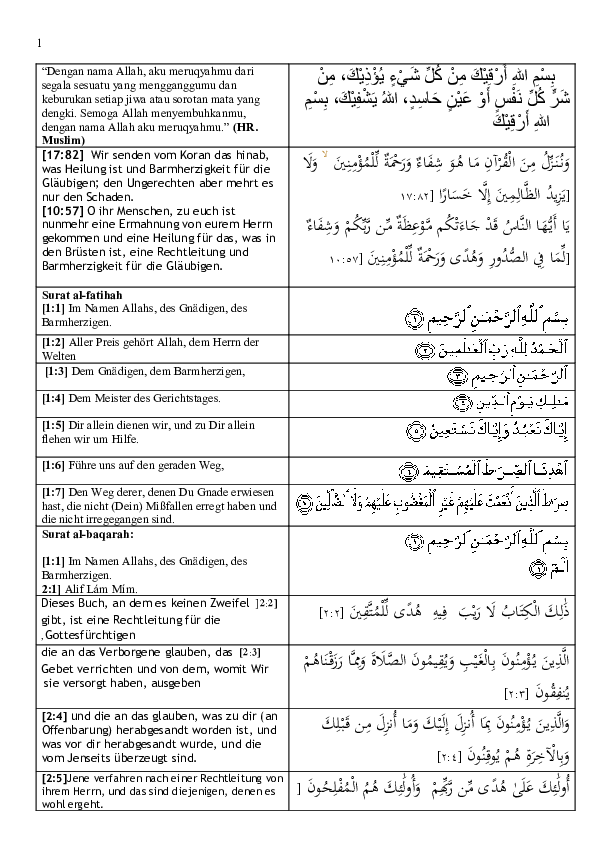 1
“Dengan nama Allah, aku meruqyahmu dari
segala sesuatu yang mengganggumu dan
keburukan setiap jiwa atau sorotan mata yang
dengki. Semoga Allah menyembuhkanmu,
dengan nama Allah aku meruqyahmu.” (HR.
Muslim)
بِسْمِ اللهِ أَرْقِيْكَ مِنْ كُلِّ شَيْءٍ يُؤْذِيْكَ، مِنْ
شَرِّ كُلِّ نَفْسٍ أَوْ عَيْنٍ حَاسِدٍ، اللهُ يَشْفِيْكَ، بِسْمِ
اللهِ أَرْقِيْكَ
[17:82] Wir senden vom Koran das hinab,
was Heilung ist und Barmherzigkeit für die
Gläubigen; den Ungerechten aber mehrt es
nur den Schaden.
[10:57] O ihr Menschen, zu euch ist
nunmehr eine Ermahnung von eurem Herrn
gekommen und eine Heilung für das, was in
den Brüsten ist, eine Rechtleitung und
Barmherzigkeit für die Gläubigen.
وَنُنَزِّلُ مِنَ الْقُرْآنِ مَا هُوَ شِفَاءٌ وَرَحْمَةٌ لِّلْمُؤْمِنِينَ ۙ وَلَا
يَزِيدُ الظَّالِمِينَ إِلَّا خَسَارًا [١٧:٨٢]
يَا أَيُّهَا النَّاسُ قَدْ جَاءَتْكُم مَّوْعِظَةٌ مِّن رَّبِّكُمْ وَشِفَاءٌ
لِّمَا فِي الصُّدُورِ وَهُدًى وَرَحْمَةٌ لِّلْمُؤْمِنِينَ [١٠:٥٧]
Surat al-fatihah
[1:1] Im Namen Allahs, des Gnädigen, des
Barmherzigen.
بِسْمِ ٱللَّهِ ٱلرَّحْمَـٰنِ ٱلرَّحِيمِ ﴿١﴾
[1:2] Aller Preis gehört Allah, dem Herrn der
Welten
ٱلْحَمْدُ لِلَّهِ رَبِّ ٱلْعَـٰلَمِينَ ﴿٢﴾
[1:3] Dem Gnädigen, dem Barmherzigen,
ٱلرَّحْمَـٰنِ ٱلرَّحِيمِ ﴿٣﴾
[1:4] Dem Meister des Gerichtstages.
مَـٰلِكِ يَوْمِ ٱلدِّينِ ﴿٤﴾
[1:5] Dir allein dienen wir, und zu Dir allein
flehen wir um Hilfe.
إِيَّاكَ نَعْبُدُ وَإِيَّاكَ نَسْتَعِينُ ﴿٥﴾
[1:6] Führe uns auf den geraden Weg,
ٱهْدِنَا ٱلصِّرَٰطَ ٱلْمُسْتَقِيمَ ﴿٦﴾
[1:7] Den Weg derer, denen Du Gnade erwiesen
hast, die nicht (Dein) Mißfallen erregt haben und
die nicht irregegangen sind.
صِرَٰطَ ٱلَّذِينَ أَنْعَمْتَ عَلَيْهِمْ غَيْرِ ٱلْمَغْضُوبِ عَلَيْهِمْ وَلَا ٱلضَّآلِّينَ ﴿٧﴾
Surat al-baqarah:
[1:1] Im Namen Allahs, des Gnädigen, des
Barmherzigen.
2:1] Alif Lám Mím.
بِسْمِ ٱللَّهِ ٱلرَّحْمَـٰنِ ٱلرَّحِيمِ ﴿١﴾
الٓمٓ ﴿١﴾
Dieses Buch, an dem es keinen Zweifel [2:2]
gibt, ist eine Rechtleitung für die
,Gottesfürchtigen
ذَٰلِكَ الْكِتَابُ لَا رَيْبَ فِيهِ هُدًى لِّلْمُتَّقِينَ [٢:٢]
die an das Verborgene glauben, das [2:3]
Gebet verrichten und von dem, womit Wir
sie versorgt haben, ausgeben
الَّذِينَ يُؤْمِنُونَ بِالْغَيْبِ وَيُقِيمُونَ الصَّلَاةَ وَمِمَّا رَزَقْنَاهُمْ
يُنفِقُونَ [٢:٣]
[2:4] und die an das glauben, was zu dir (an
Offenbarung) herabgesandt worden ist, und
was vor dir herabgesandt wurde, und die
vom Jenseits überzeugt sind.
وَالَّذِينَ يُؤْمِنُونَ بِمَا أُنزِلَ إِلَيْكَ وَمَا أُنزِلَ مِن قَبْلِكَ
وَبِالْآخِرَةِ هُمْ يُوقِنُونَ [٢:٤]
[2:5]Jene verfahren nach einer Rechtleitung von
ihrem Herrn, und das sind diejenigen, denen es
wohl ergeht.
أُولَٰئِكَ عَلَىٰ هُدًى مِّن رَّبِّهِمْ وَأُولَٰئِكَ هُمُ الْمُفْلِحُونَ [